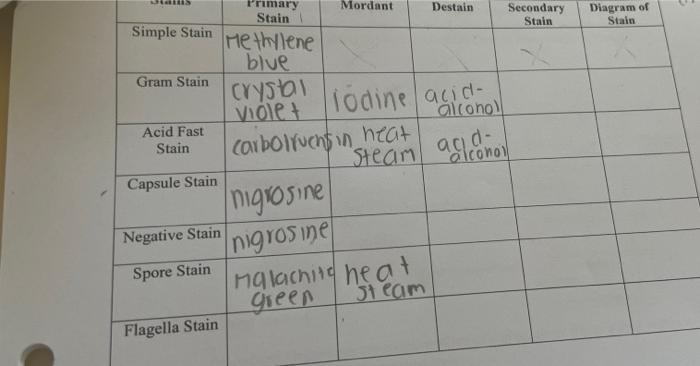 Stains Primary Stain Mordant Destain Secondary Stain Diagram of Stain
Simple Stain Methylene blue X X X X
Gram Stain crystal violet iodine acid-alcohol
Acid Fast Stain carbolfuchsin heat steam acid-alcohol
Capsule Stain nigrosine
Negative Stain nigrosine
Spore Stain Malachite green heat steam
Flagella Stain